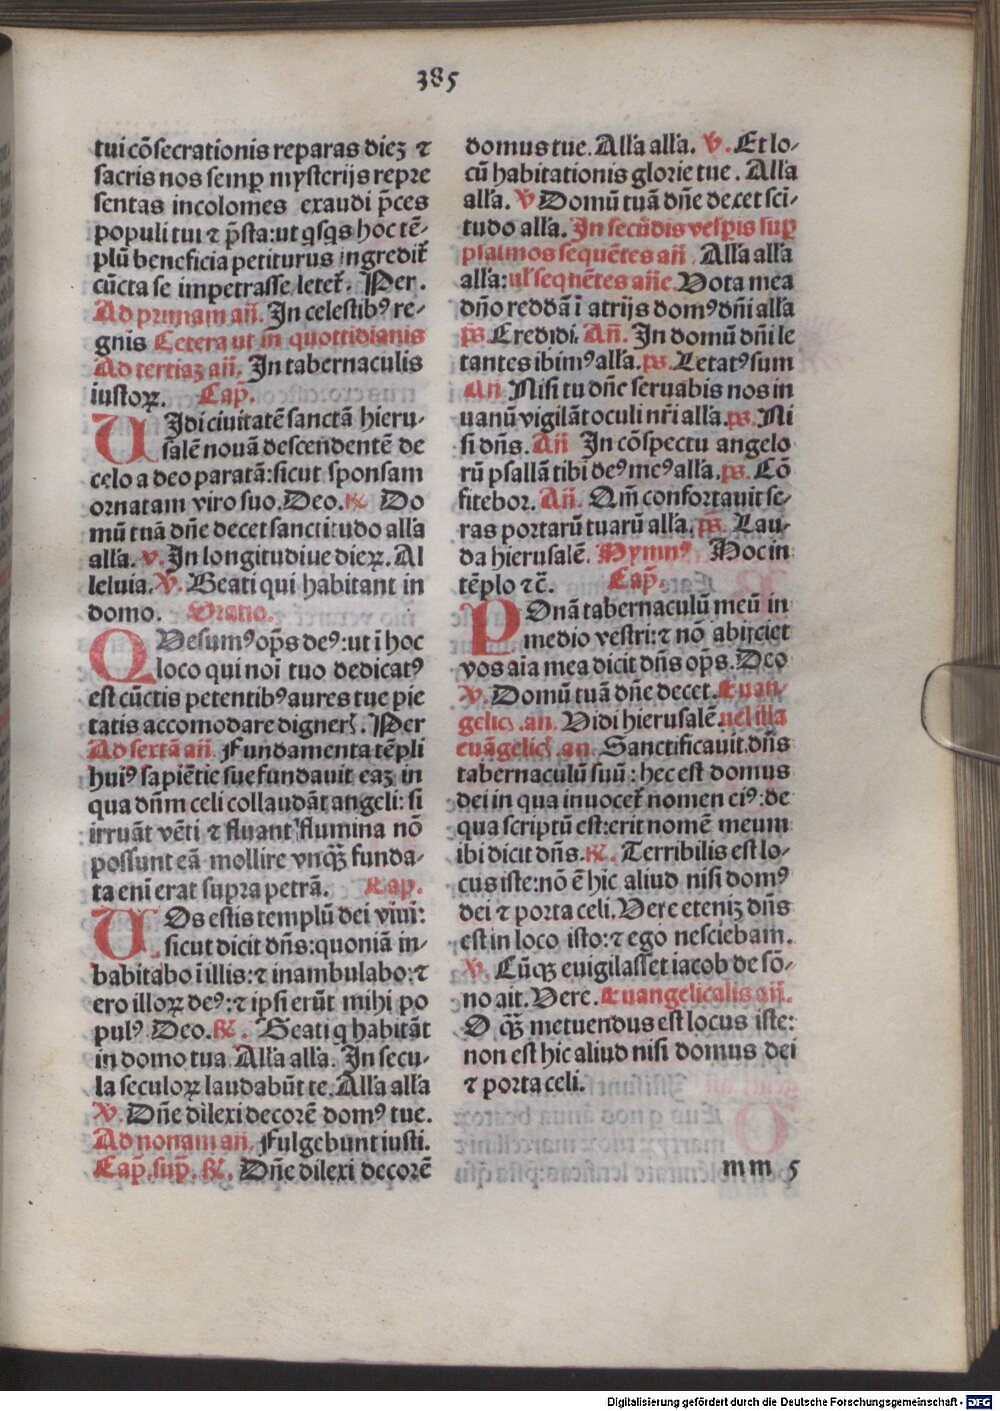 385
tui cõsecrationis reparas dieʒ ⁊
sacris nos semꝑ mysterijs repre
sentas incolomes exaudi p̃ces
populi tui ⁊ p̃sta: ut qsqs hoc tẽ-
plũ beneficia petiturus ingredit᷑
cũcta se impetrasse letet᷑. Per.
Ad primam añ. In celestibꝰ re-
gnis Cetera ut in quottidianis
Ad tertiaʒ añ. In tabernaculis
iustoꝝ. Cap̃.
UIdi ciuitatẽ sanctã hieru-
salẽ nouã descendentẽ de
celo a deo paratã: sicut sponsam
ornatam viro suo. Deo. ℟. Do
mũ tuã dñe decet sanctitudo alľa
alľa. v. In longitudiue dieꝝ. Al
leluia. ℣. Beati qui habitant in
domo. Oratio.
QUesumꝰ op̃s deꝰ: ut ĩ hoc
loco qui noĩ tuo dedicatꝰ
est cũctis petentibꝰ aures tue pie
tatis accomodare digneris. Per
Ad sextã añ. Fundamenta tẽpli
huiꝰ sapiẽtie sue fundauit eaʒ in
qua dñm celi collaudãt angeli: si
irruãt vẽti ⁊ fluant flumina nõ
possunt eã mollire vnq̃ꝫ funda-
ta enĩ erat supra petrã. Cap.
UOs estis templũ dei viui:
sicut dicit dñs: quoniã in-
habitabo ĩ illis: ⁊ inambulabo: ⁊
ero illoꝝ deꝰ: ⁊ ipsi erũt mihi po
pulꝰ Deo. ℟. Beati q habitãt
in domo tua Alľa alľa. In secu-
la seculoꝝ laudabũt te. Alľa alľa
℣. Dñe dilexi decorẽ domꝰ tue.
Ad nonam añ. Fulgebunt iusti.
Cap̃. sup̃. ℟. Dñe dilexi decorẽ
domus tue. Alľa alľa. ℣. Et lo-
cũ habitationis glorie tue. Alľa
alľa. ℣ Domũ tuã dñe decet sci̊-
tudo alľa. In secũdis vesꝑis suꝑ
psalmos sequẽtes añ. Alľa alľa
alľa: uľ seqnẽtes añe. Vota mea
dño reddã ĩ atrijs domꝰ dñi alľa
p̃s. Credidi. Añ. In domũ dñi le
tantes ibimꝰ alľa. ps. Letatꝰ sum
Añ Nisi tu dñe seruabis nos in
uanũ vigilãt oculi nr̃i alľa. ps. Ni
si dñs. Añ In cõspectu angelo
rũ psallã tibi deꝰ meꝰ alľa. ps. Cõ
fitebor. Añ. Qm̃ confortauit se-
ras portarũ tuarũ alľa. p̃s. Lau-
da hierusalẽ. Hymnꝰ Hoc in
tẽplo ⁊c̃. Cap̃.
POnã tabernaculũ meũ in
medio vestri: ⁊ nõ abijciet
vos aĩa mea dicit dñs op̃s. Deo
℣. Domũ tuã dñe decet. Euan-
gelic̃ .an. Vidi hierusalẽ. uel illa
euãgelic̃ .an. Sanctificauit dñs
tabernaculũ suũ: hec est domus
dei in qua inuocet᷑ nomen eiꝰ: de
qua scriptũ est: erit nomẽ meum
ibi dicit dñs. ℟. Terribilis est lo-
cus iste: nõ ẽ hic aliud nisi domꝰ
dei ⁊ porta celi. Vere eteniʒ dñs
est in loco isto: ⁊ ego nesciebam.
℣. Cũqꝫ euigilasset iacob de sõ-
no ait. Vere. Euangelicalis añ.
O q̃ꝫ metuendus est locus iste:
non est hic aliud nisi domus dei
⁊ porta celi.
mm 5
Digitalisierung gefördert durch die Deutsche Forschungsgemeinschaft - DFG